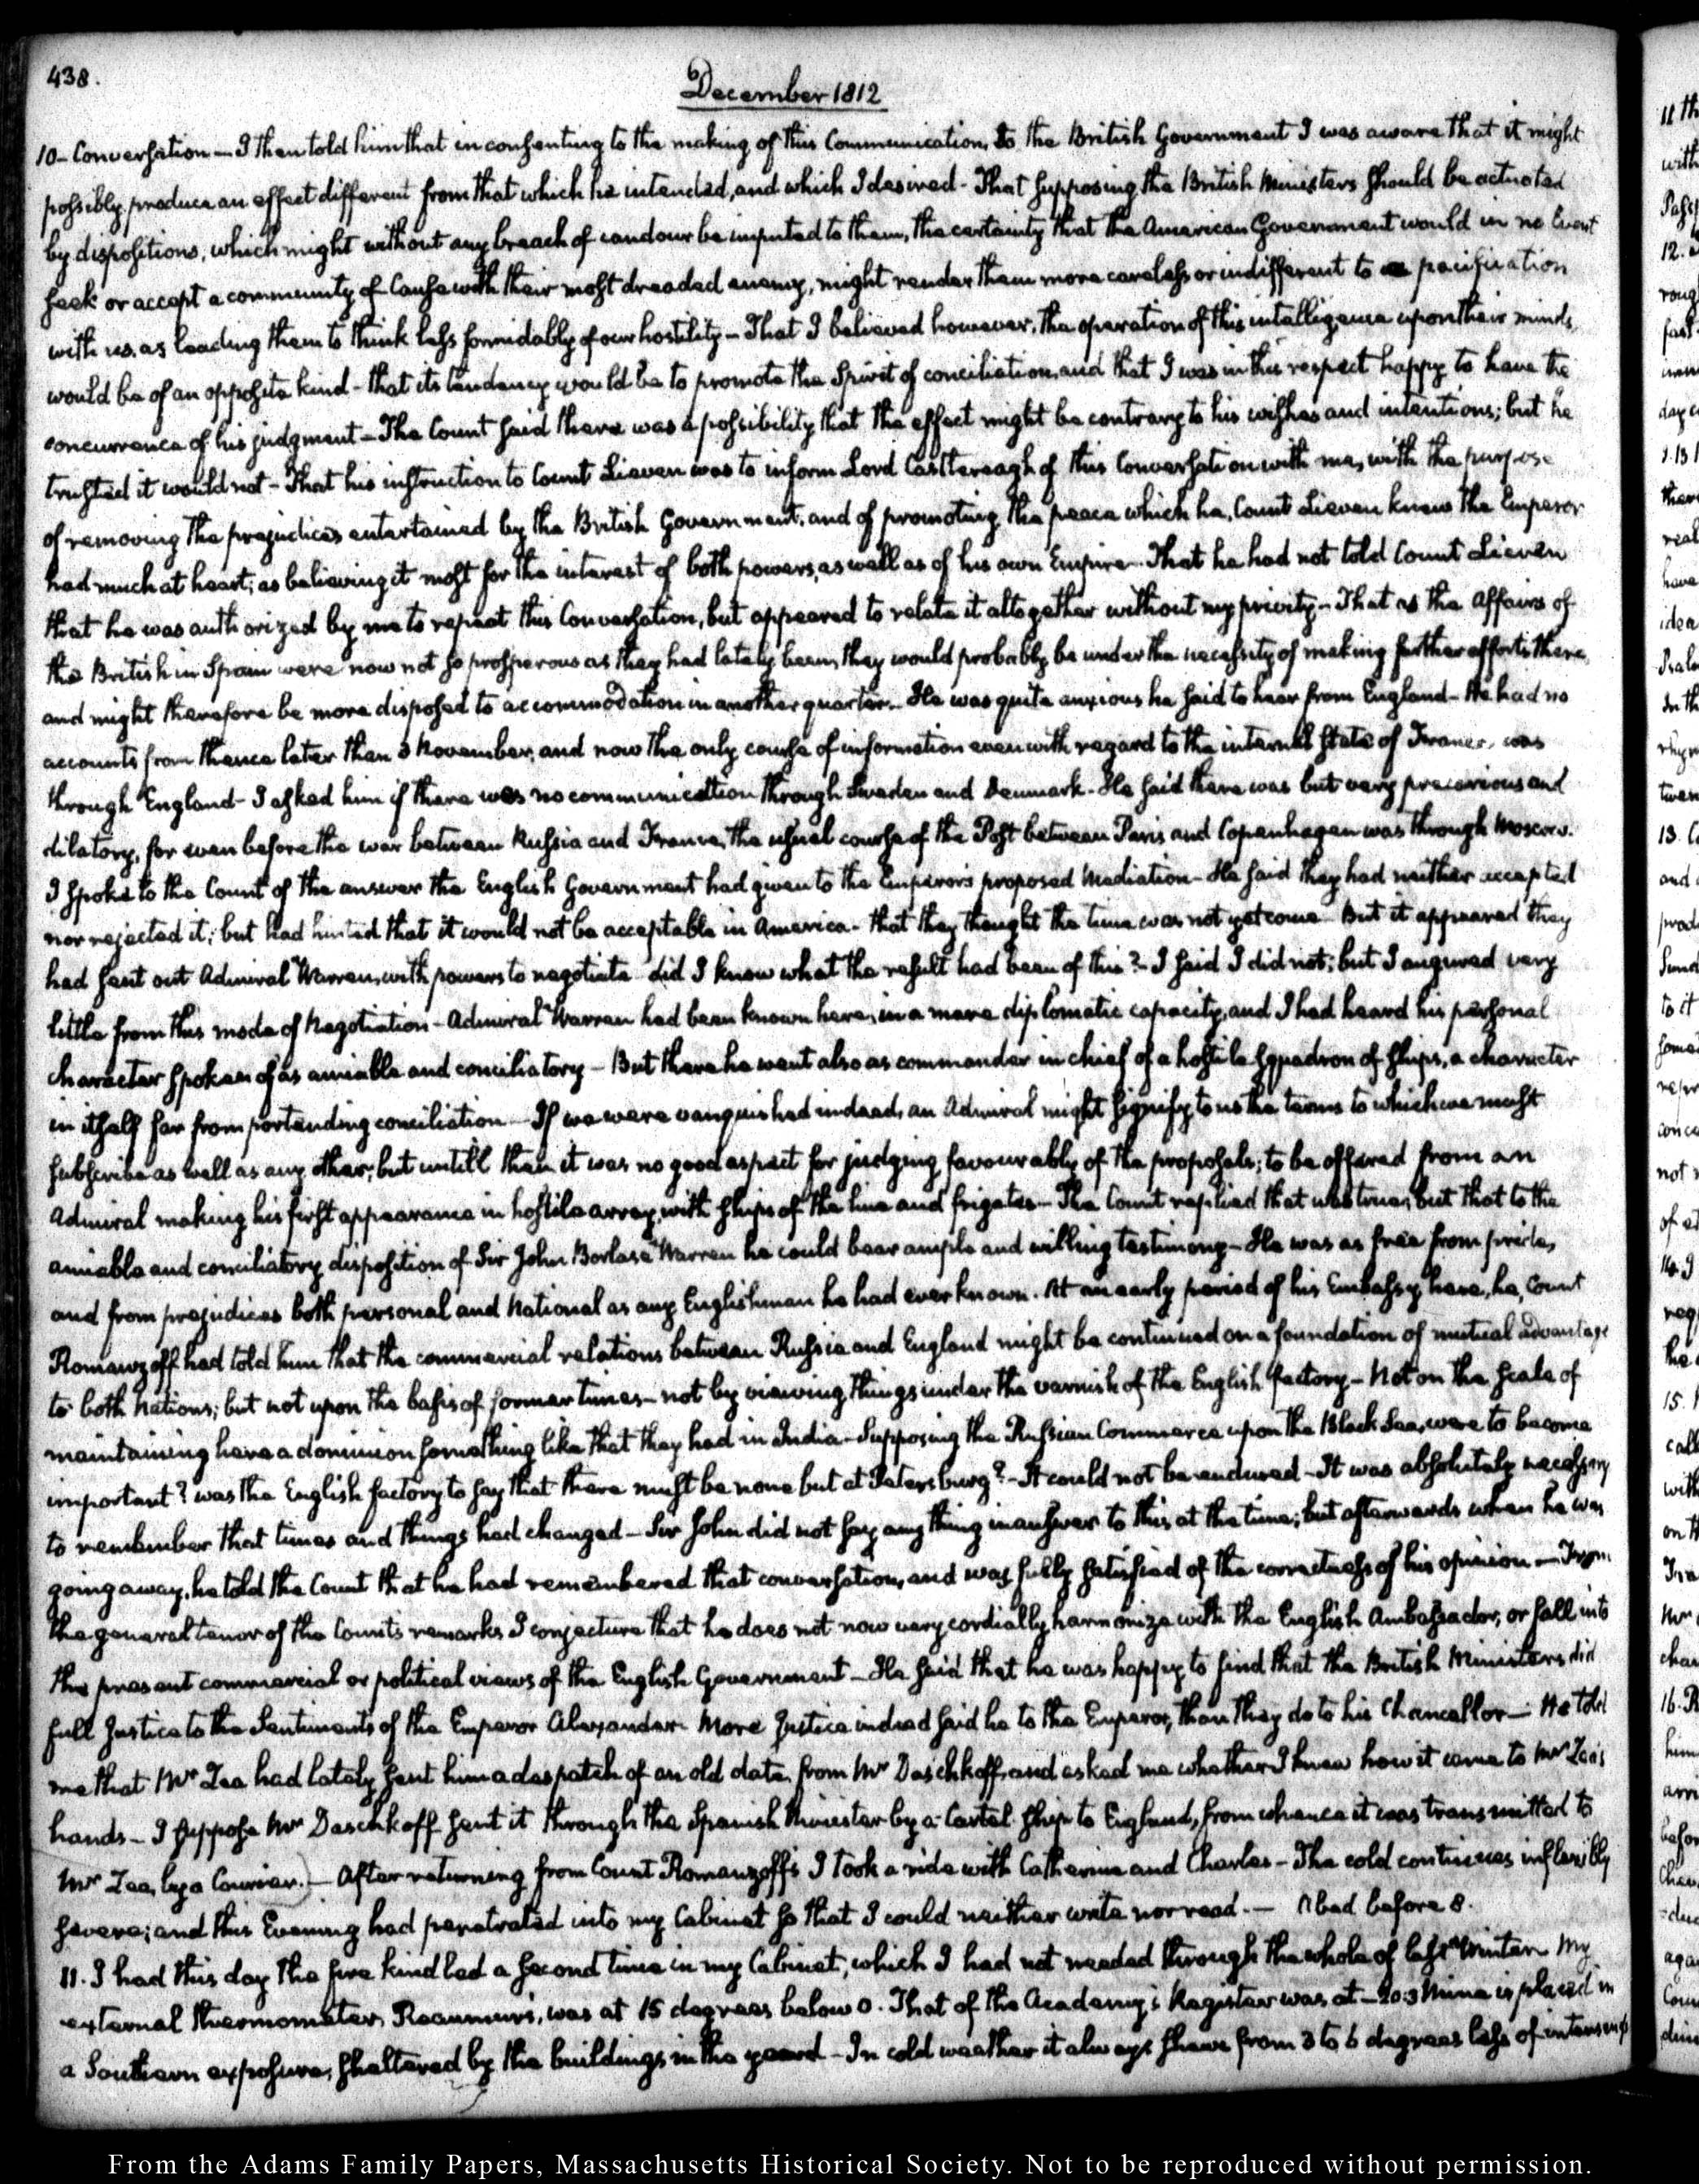 438.
December 1812
10 - Conversation — I then told him that in consenting to the making of this Communication, to the British Government I was aware that it might
possibly produce an effect different from that which he intended, and which I desired - That supposing the British Ministers should be actuated
by dispositions, which might without any breach of candour be imputed to them, the certainty that the American Government would in no Event
seek or accept a community of Cause with their most dreaded enemy, might render them more careless or indifferent to a pacification
with us, as leading them to think less formidably of our hostility - That I believed however, the operation of this intelligence upon their minds
would be of an opposite kind - that its tendency would be to promote the Spirit of conciliation, and that I was in this respect happy to have the
concurrence of his judgment - The Count said there was a possibility that the effect might be contrary to his wishes and intentions; but he
trusted it would not - That his instruction to Count Lieven was to inform Lord Castlereagh of this Conversation with me, with the purpose
of removing the prejudices entertained by the British Government, and of promoting the peace which he, Count Lieven knew the Emperor
had much at heart; as believing it most for the interest of both powers, as well as of his own Empire. That he had not told Count Lieven
that he was authorized by me to repeat this Conversation, but appeared to relate it altogether without my privity - That as the affairs of
the British in Spain were now not so prosperous as they had lately been, they would probably be under the necessity of making further efforts there,
and might therefore be more disposed to accommodation in another quarter. He was quite anxious he said to hear from England - He had no
accounts from thence later than 3 November, and now the only course of information even with regard to the internal state of France, was
through England - I asked him if there was no communication through Sweden and Denmark - He said there was but very precarious and
dilatory, for even before the war between Russia and France, the usual course of the Post between Paris and Copenhagen was through Moscow.
I spoke to the Count of the answer the English Government had given to the Emperor's proposed Mediation - He said they had neither accepted
nor rejected it; but had hinted that it would not be acceptable in America - that they thought the time was not yet come. But it appeared they
had sent out Admiral Warren, with powers to negotiate - did I know what the result had been of this? - I said I did not; but I augured very
little from this mode of Negotiation - Admiral Warren had been known here, in a mere diplomatic capacity, and I had heard his personal
character spoken of as amiable and conciliatory - But there he went also as commander in chief of a hostile squadron of ships, a character
in itself far from portending conciliation - If we were vanquished indeed, an Admiral might signify to us the terms to which we must
subscribe as well as any other; but untill then it was no good aspect for judging favourably of the proposals; to be offered from an
Admiral making his first appearance in hostile array, with ships of the line and frigates - The Count replied that was true; but that to the
amiable and conciliatory disposition of Sir John Borlase Warren he could bear ample and willing testimony - He was as free from pride,
and from prejudices both personal and National as any Englishman he had ever known. At an early period of his Embassy here, he, Count
Romanzoff had told him that the commercial relations between Russia and England might be continued on a foundation of mutual advantage
to both Nations; but not upon the basis of former times - not by viewing things under the varnish of the English factory - Not on the scale of
maintaining here a dominion something like that they had in India - Supposing the Russian Commerce upon the Black Sea, were to become
important? was the English factory to say that there must be none but at Petersburg? - It could not be endured - It was absolutely necessary
to remember that times and things had changed - Sir John did not say any thing in answer to this at the time; but afterwards when he was
going away, he told the Count that he had remembered that conversation, and was fully satisfied of the correctness of his opinion - From
the general tenor of the Count's remarks I conjecture that he does not now very cordially harmonize with the English Ambassador, or fall into
the present commercial or political views of the English Government - He said that he was happy to find that the British Ministers did
full Justice to the Sentiments of the Emperor Alexander. More Justice indeed said he to the Emperor, than they do to his Chancellor - He told
me that Mr Zea had lately sent him a despatch of an old date, from Mr Daschkoff, and asked me whether I knew how it came to Mr Zea's
hands - I suppose Mr Daschkoff sent it through the Spanish Minister by a Cartel ship to England, from whence it was transmitted to
Mr Zea, by a Courier.) - After returning from Count Romanzoff's I took a ride with Catherine and Charles - The cold continues inflexibly
severe; and this Evening had penetrated into my Cabinet so that I could neither write nor read. — Abed before 8.
11. I had this day the fire kindled a second time in my Cabinet, which I had not needed through the whole of last Winter. My
external thermometer, Reaumur's, was at 15 degrees below 0. That of the Academy's Register was at - 20.3 Mine is placed in
a Southern exposure, sheltered by the buildings in the yard - In cold weather it always shews from 3 to 6 degrees less of intensity
From the Adams Family Papers, Massachusetts Historical Society. Not to be reproduced without permission.